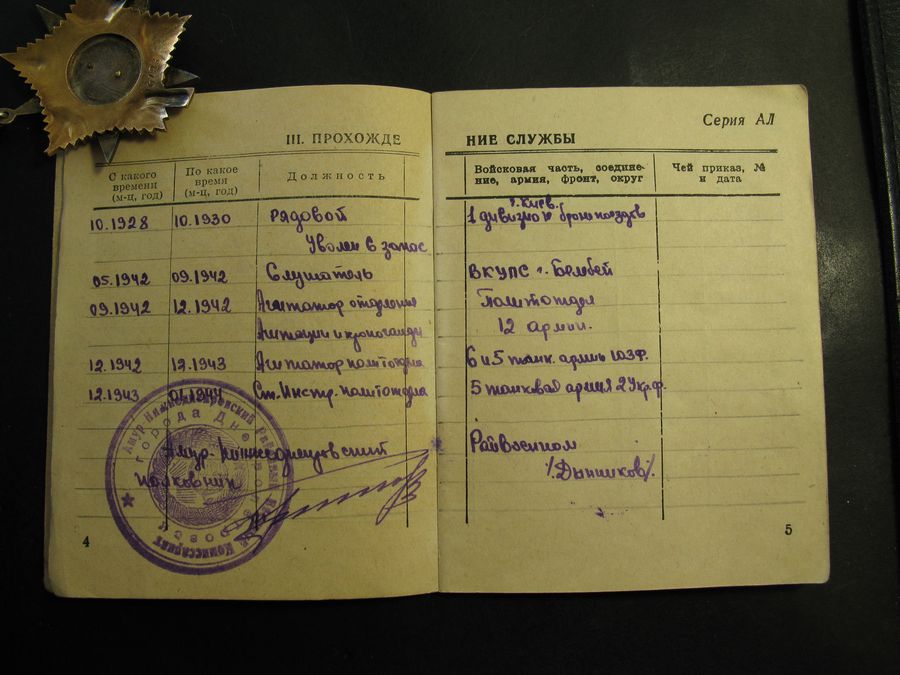 Серия АЛ
III. ПРОХОЖДЕНИЕ СЛУЖБЫ
С какого времени (м-ц, год)
По какое время (м-ц, год)
Должность
Войсковая часть, соедине-
ние, армия, фронт, округ
Чей приказ, №
и дата
10.1928 10.1930 Рядовой г. Киев.
1 дивизион бронепоездов
Уволен в запас
05.1942 09.1942 Слушатель ВКУПС г. Белебей
09.1942 12.1942 Агитатор отделения Политотдел
Агитации и пропаганды 12 армии.
12.1942 12.1943 Агитатор политотдела 6 и 5 танк. армии ЮЗФ.
12.1943 01.1944 Ст. Инстр. политотдела 5 танковая армия 2 Укр.ф.
Амур-Нижнеднепровский Райвоенком
Полковник /Дынников/
Амур Нижнеднепровский Районный Комиссариат
города Днепропетровск
4
5